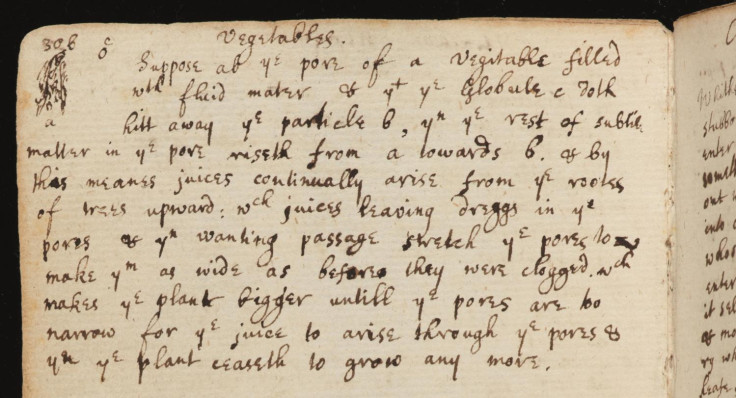 306 Vegetables.
c
b Suppose ab yᵉ pore of a Vegitable filled
wᵗʰ fluid mater & yᵗ yᵉ Globule c doth
a hitt away yᵉ particle b, yⁿ yᵉ rest of subtile
matter in yᵉ pore riseth from a towards b. & by
this meanes juices continually arise from yᵉ roots
of trees upward: wᶜʰ juices leaving dreggs in yᵉ
pores & yⁿ wanting passage stretch yᵉ pores to
make yᵐ as wide as before they were clogged. wᶜʰ
makes yᵉ plant bigger untill yᵉ pores are too
narrow for yᵉ juice to arise through yᵉ pores &
yⁿ yᵉ plant ceaseth to grow any more.
stubbo
enter
out
into
whos
enter
it sel